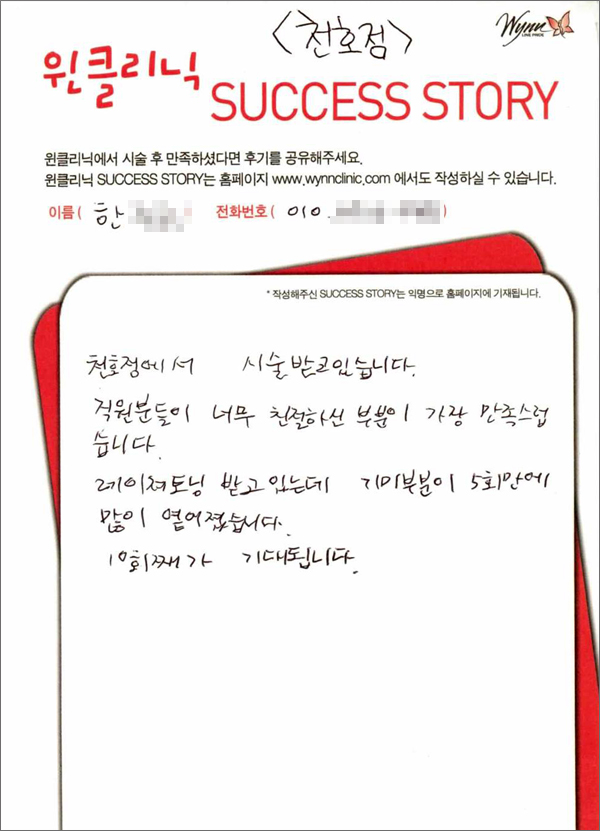 <천호점>
Wynn
LINE PRIDE
윈클리닉
SUCCESS STORY
윈클리닉에서 시술 후 만족하셨다면 후기를 공유해주세요.
윈클리닉 SUCCESS STORY는 홈페이지 www.wynnclinic.com 에서도 작성하실 수 있습니다.
이름 ( 한 ) 전화번호 ( 010. )
* 작성해주신 SUCCESS STORY는 익명으로 홈페이지에 기재됩니다.
천호점에서 시술받고있습니다.
직원분들이 너무 친절하신 부분이 가장 만족스럽
습니다.
레이져토닝 받고있는데 기미부분이 5회만에
많이 옅어졌습니다.
10회째가 기대됩니다.